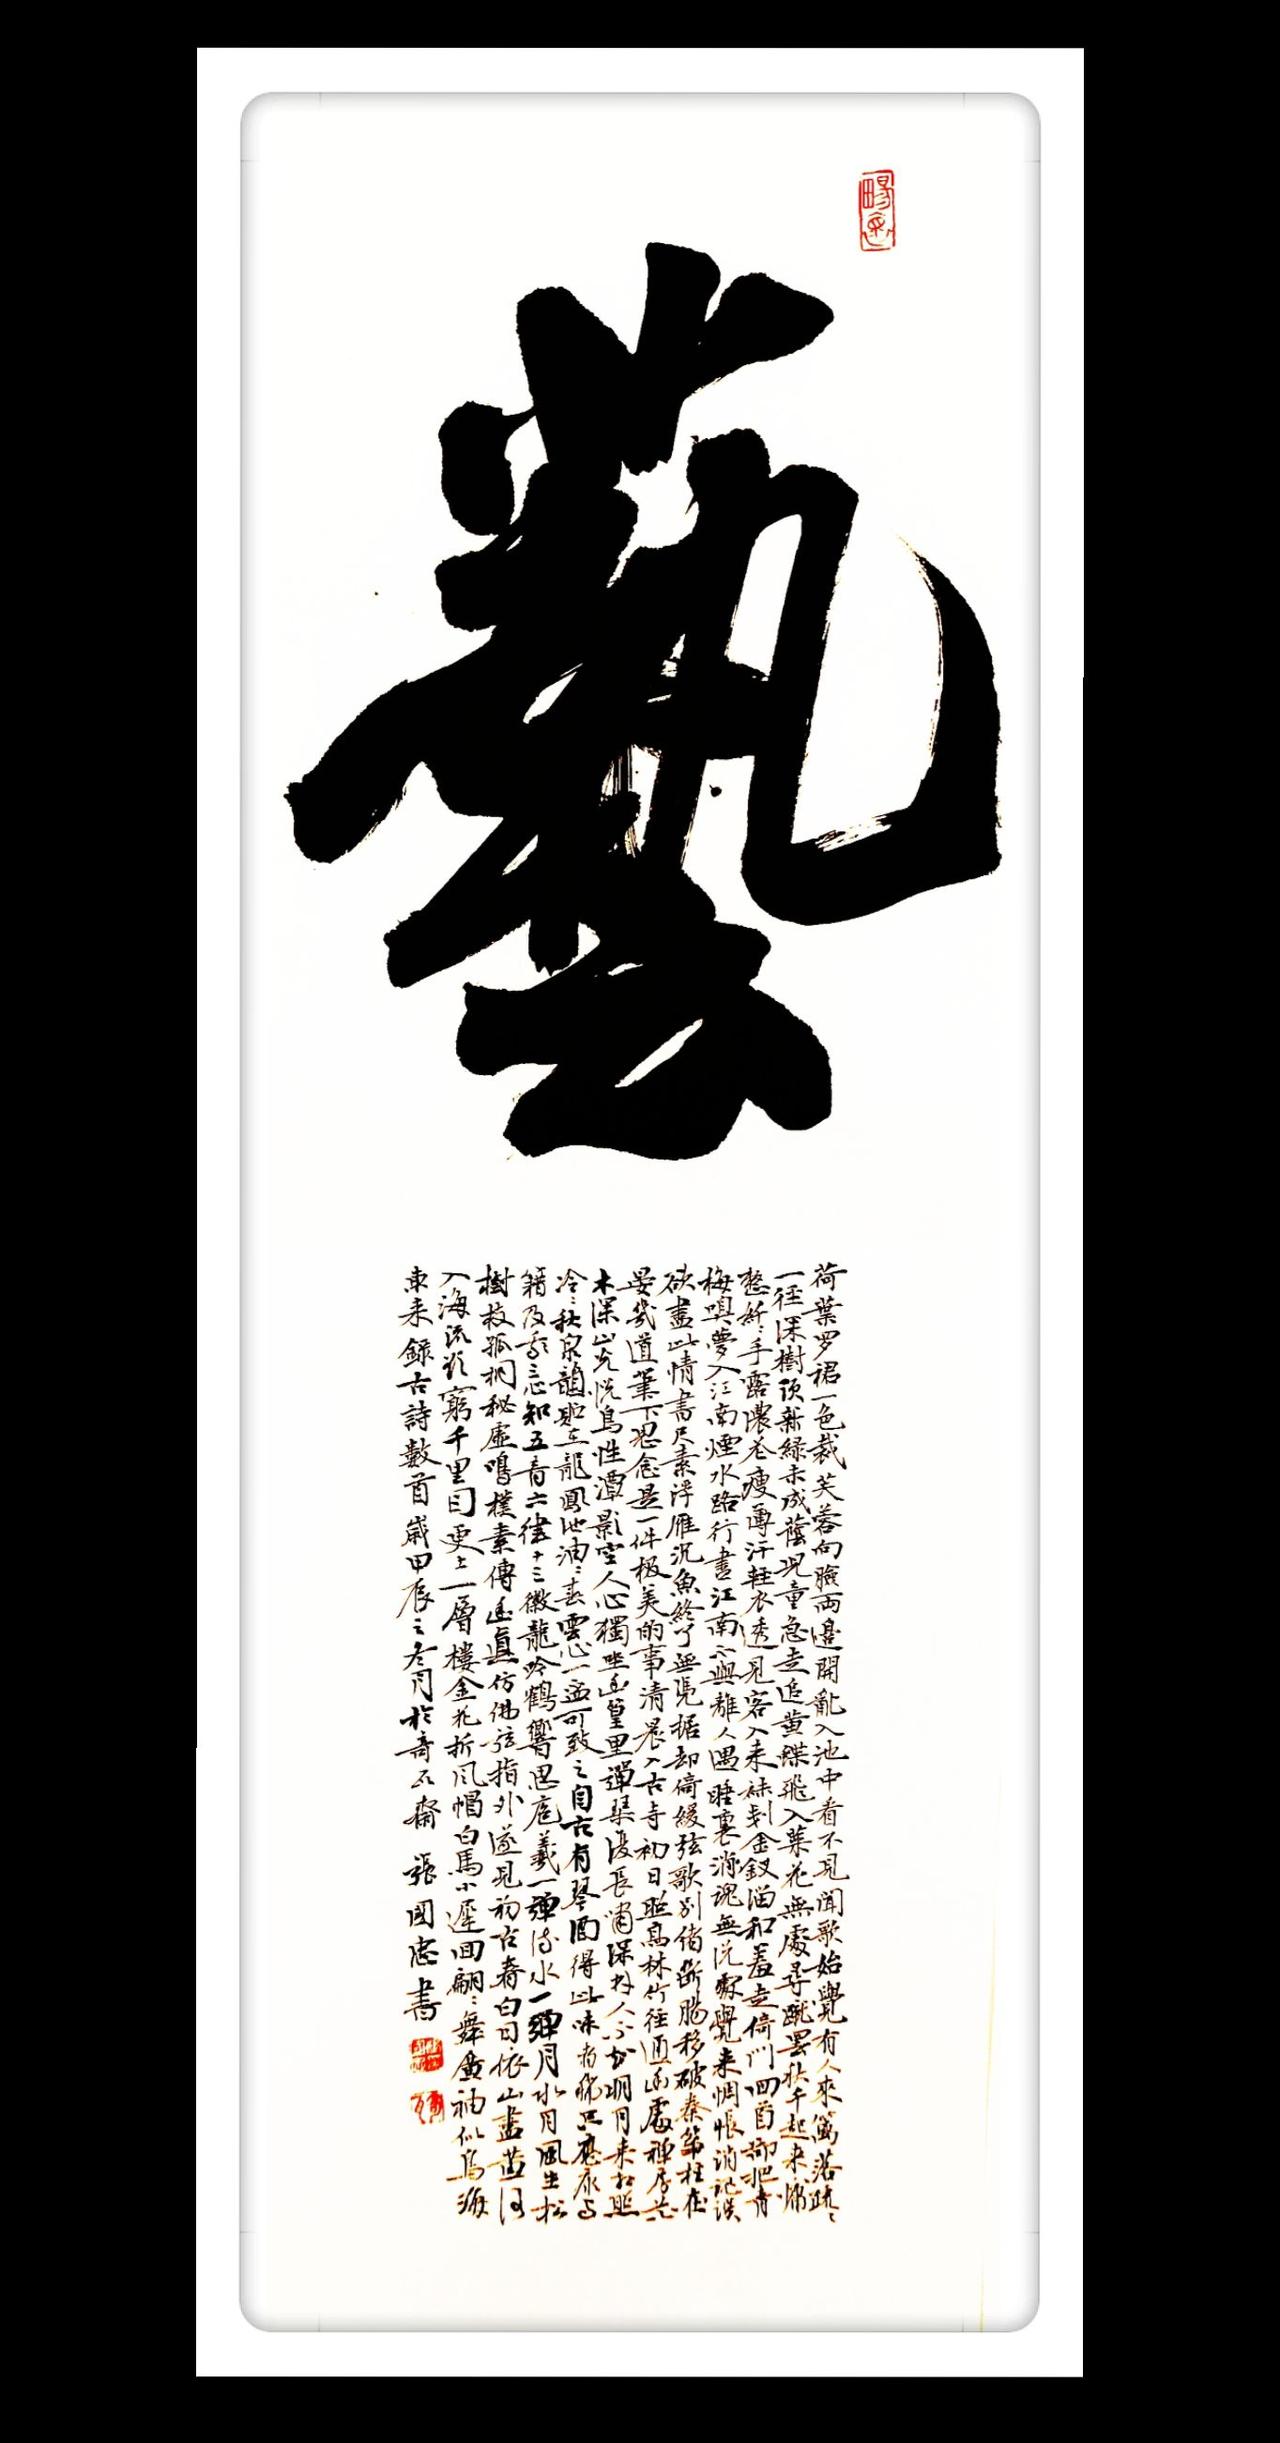 暢意
藝
荷葉罗裙一色裁芙蓉向臉两邊開亂入池中看不見聞歌始覺有人來篱落疏〻
一徑深樹頭新緑未成蔭児童急走追黄蝶飛入菜花無處尋蹴罢秋千起来慵
整纤〻手露濃花瘦薄汗輕衣透見客入来袜剗金釵溜和羞走倚門回首却把青
梅嗅夢入江南煙水路行盡江南不與離人遇睡裏消魂無说處覺来惆悵消魂误
欲盡此情書尺素浮雁沉魚終了無凭据却倚緩弦歌别緒断腸移破秦筝柱在
晏幾道筆下思念是一件极美的事清晨入古寺初日照高林竹徑通幽處禅房花
木深山光悦鳥性潭影空人心獨坐幽篁里彈琴復長嘯深林人不知明月来相照
冷〻秋泉韻 在龍鳳池油〻春雲心一 可致之自古有琴酒得此味者稀只應康与
籍及我三心知五音六律十三徽龍吟鶴響思庖羲一彈流水一彈月水月風生松
樹枝孤桐秘虛鳴樸素傳幽真仿佛弦指外遂見初古春白日依山盡黄河
入海流欲窮千里目更上一層樓金花折风帽白馬小遲回翩〻舞廣袖似鳥海
東来錄古詩數首歲甲辰之冬月於奇石齋 張國忠書